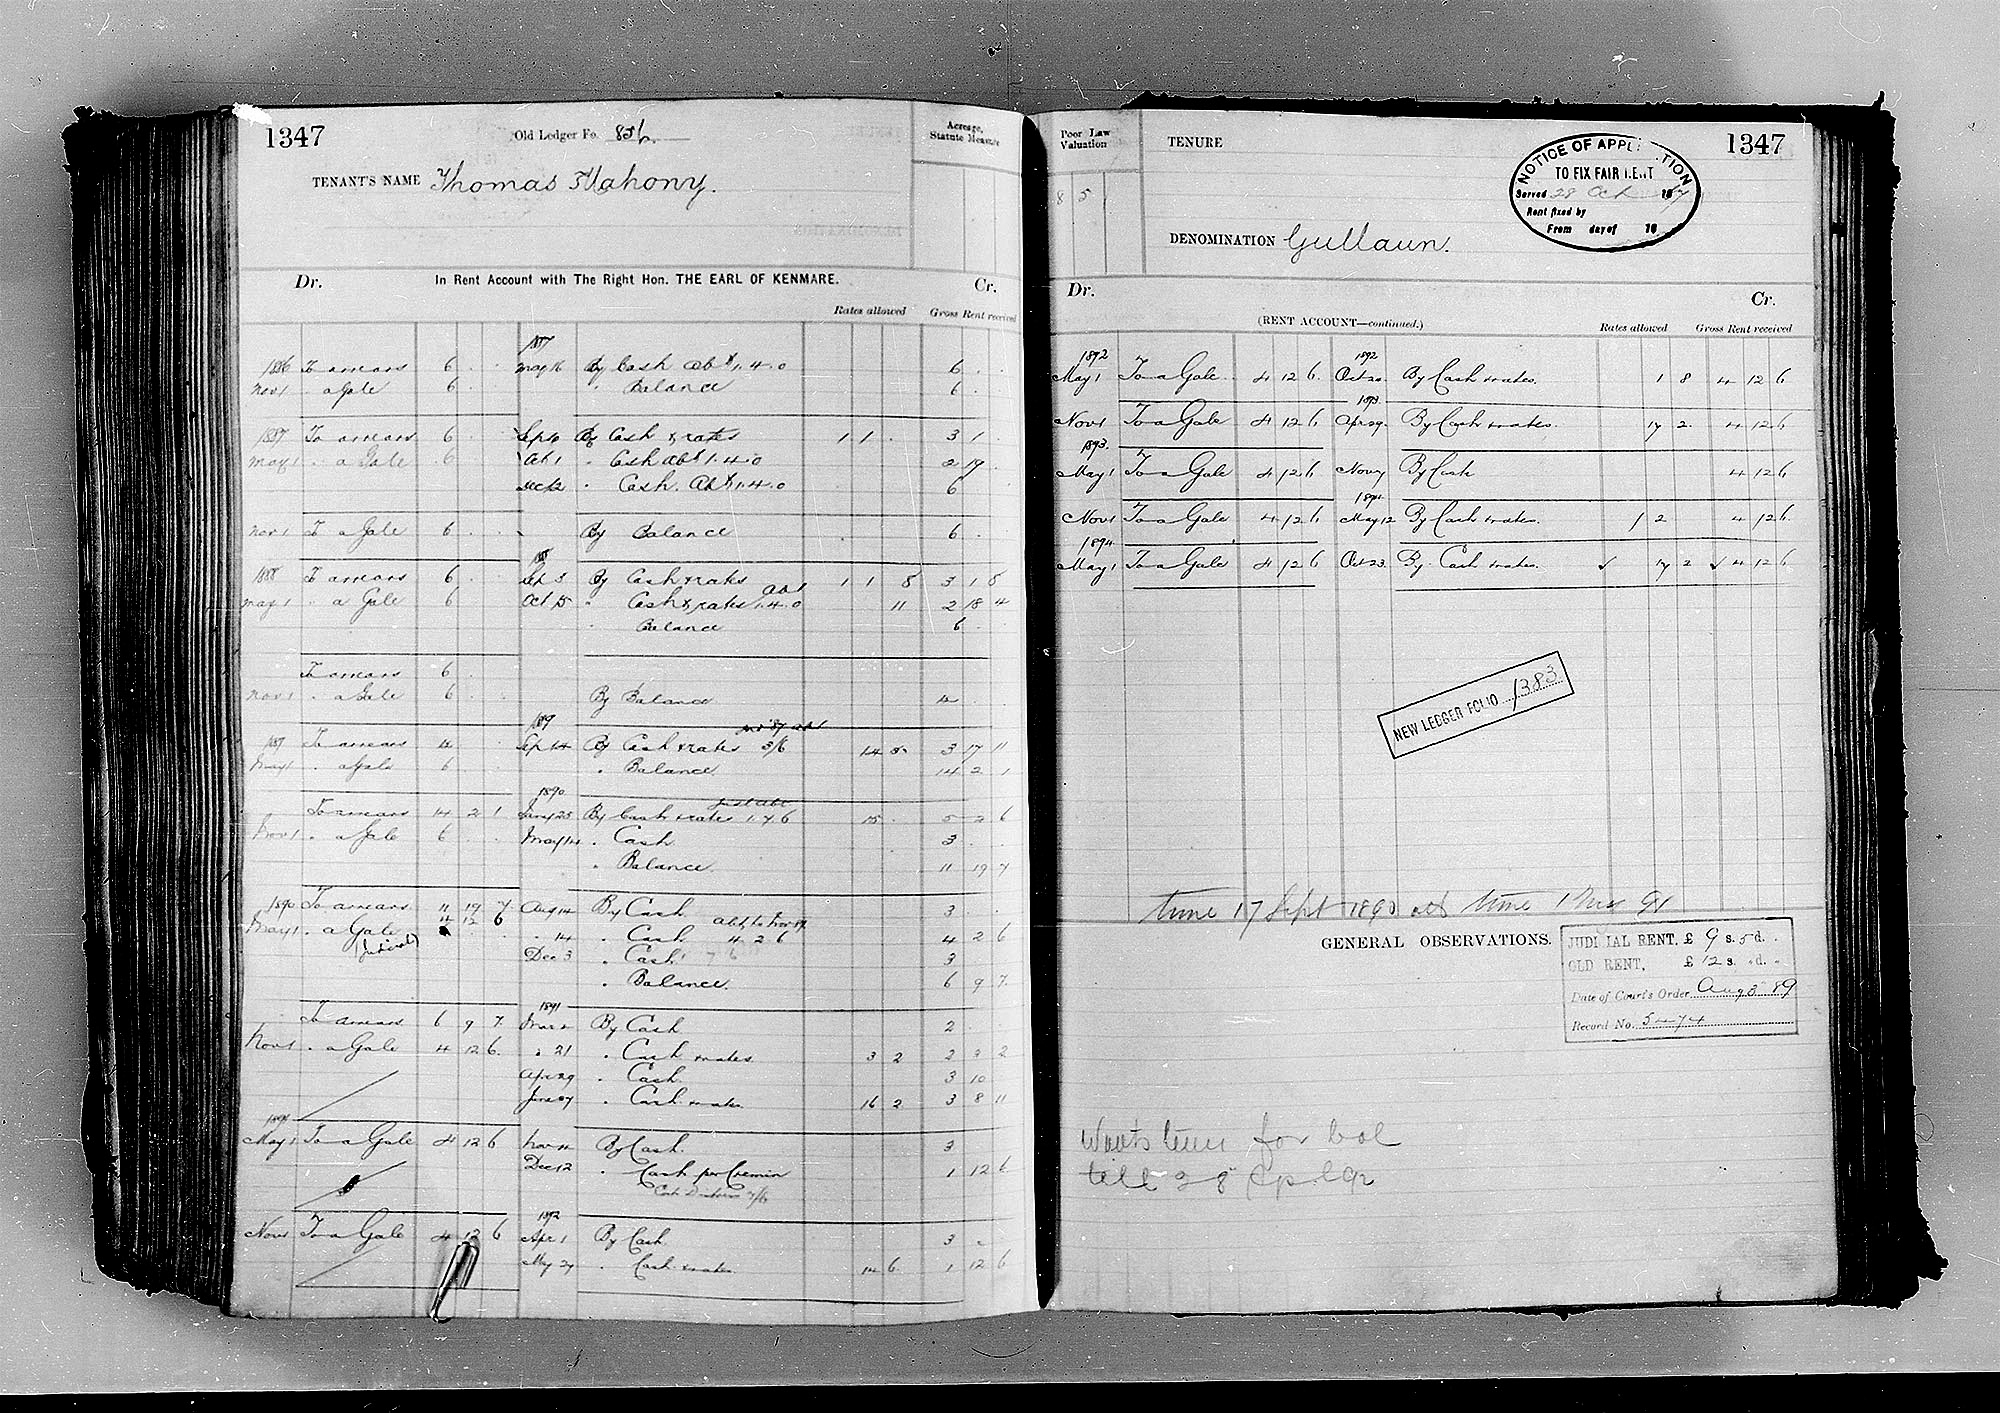 1347
Old Ledger Fo. 856
TENANT'S NAME Thomas Mahony.
Acreage, Statute Measure
Dr. In Rent Account with The Right Hon. THE EARL OF KENMARE. Cr.
Rates allowed Gross Rent received
1887
1886 To arrears 6 . . May 16 By Cash Abt 1.4.0 6 . .
Nov 1 " a Gale 6 " Balance 6 .
1887 To arrears 6 . . Sept By Cash & rates 1 1 . 3 1 .
May 1 " a Gale 6 Oct 1 " Cash Abt 1.4.0 2 19 .
Dec 12 " Cash. Abt 1.4.0 6
Nov 1 To a Gale 6 . . By Balance 6 .
1888
1888 To arrears 6 . . Sep 3 By Cash & rates 1 1 8 3 1 8
May 1 " a Gale 6 Oct 15 " Cash & rates Abt 1.4.0 11 2 18 4
" Balance 6 .
To arrears 6 .
Nov 1 " a Gale 6 . By Balance 4 .
1889
1889 To arrears 4 . Sept 14 By Cash & rates 3/6 14 5 3 17 11
May 1 " a Gale 6 . " Balance 14 2 1
1890
To arrears 14 2 1 Jany 25 By Cash & rates 1.7.6 15 . 5 2 6
Nov 1 " a Gale 6 . . May 14 " Cash 3 . .
" Balance 11 19 7
1890 To arrears 11 19 7 Aug 14 By Cash 3 . .
May 1 " a Gale 4 12 6 " 14 " Cash abt to Nov 89 4 2 6 4 2 6
(Judicial) Dec 3 " Cash 3
" Balance. 6 9 7.
1891
To arrears 6 9 7. Mar 2 By Cash 2
Nov 1 " a Gale 4 12 6. " 21 " Cash & rates 3 2 2 3 2
Apr 29 " Cash. 3 10
June " Cash & rates 16 2 3 8 11
1891
May 1 To a Gale 4 12 6 Nov By Cash. 3
Dec 12 " Cash per Cremin 1 12 6
1892
Nov 1 To a Gale 4 12 6 Apr 1 By Cash 3 -
May 27 " Cash & rates 14 6. 1 12 6
Poor Law Valuation
8 5
TENURE
1347
NOTICE OF APPL TION
TO FIX FAIR RENT
Served 28 Oct
Rent fixed by
From day of 18
DENOMINATION Gullaun.
Dr. Cr.
(RENT ACCOUNT—continued.)
Rates allowed Gross Rent received
1892 1892
May 1 To a Gale. 4 12 6. Oct 20. By Cash & rates. 1 8 4 12 6
1893.
Nov 1 To a Gale 4 12 6 Apr 29. By Cash & rates. 17 2. 4 12 6
1893.
May 1 To a Gale 4 12 6 Nov 7 By Cash 4 12 6
1894
Nov 1 To a Gale 4 12 6 May 12 By Cash & rates. 1 2 4 12 6.
1894
May 1 To a Gale 4 12 6 Oct 23. By Cash & rates. 17 2 4 12 6
NEW LEDGER FOLIO 1383
time 17 Sept 1890 time 1 91
GENERAL OBSERVATIONS.
JUDI IAL RENT, £ 9 s. 5 d. .
OLD RENT, £ 12 s. " d. "
Date of Court's Order Aug 3 89
Record No. 5474
Wants time for bal
till 28